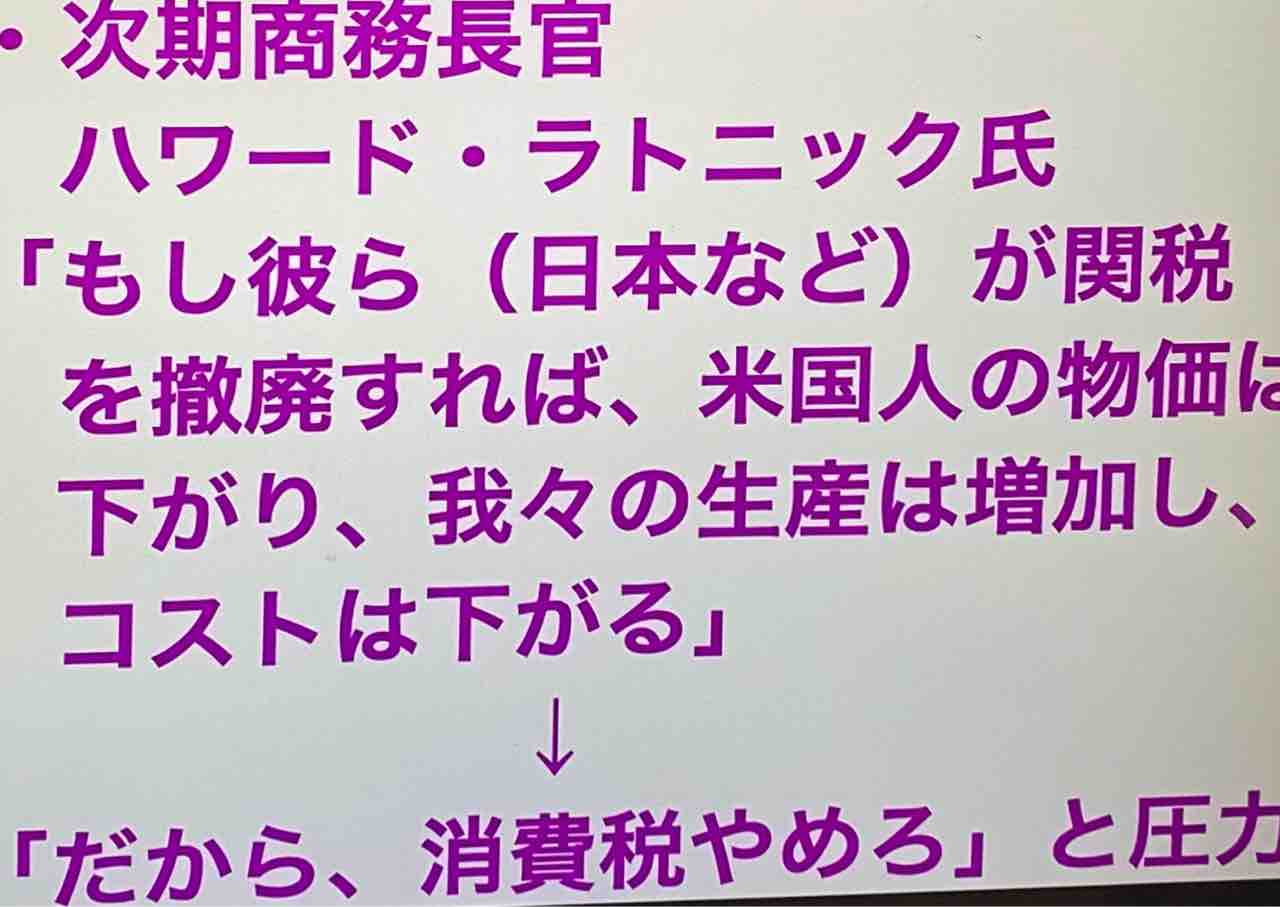 ・次期商務長官
ハワード・ラトニック氏
「もし彼ら(日本など)が関税
を撤廃すれば、米国人の物価は
下がり、我々の生産は増加し、
コストは下がる」
↓
「だから、消費税やめろ」と圧力